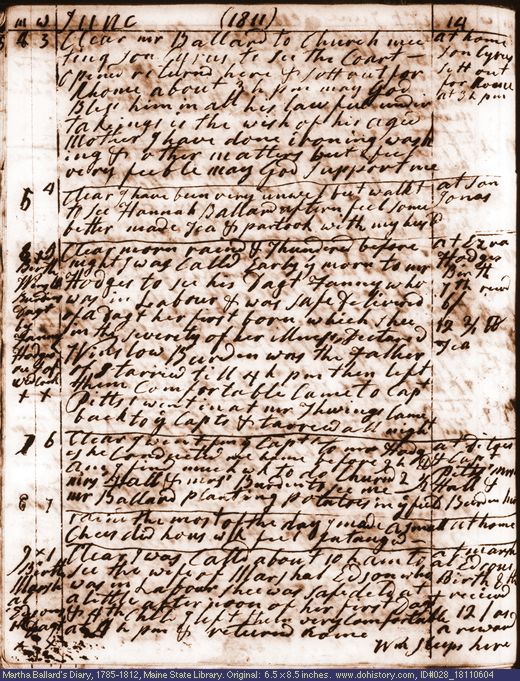 m w JUNE (1811) 14
4 3 Clear mr Ballard to Church mee
ting son Cyrus to see the Court
returned here & sett out for
home about 3 h pm may God
Bless him in all his lawful under
takings is the wish of his agd
Mother I have done ironing wash
ing & other matters but feel
very feeble may God support me
at home
son Cyrus
sett out
for home
at 3 h pm
5 4 Clear I have been very unwel but walkt
to see Hannah Ballard return feel some
better made Tea & partook with my husbd
at son
Jonas
Clear morn raind & Thundred before
night I was Calld Early this morn to mr
Hodges to see his Dagt Fanny who
was in Labour & was safe Delivered
of a Dagt her first born which she
in the severity of her illness Declared
Winslow Burden was the Father
of I tarried till 4 h pm then left
them Comfortable Came to Capt
Pitts I went in at mr Thwings came
back to ys Capts & tarried all night
Birth
Winslo
Burdens
Dagt
by
Fanny
Hodges
out of
wedlock
+ +
at Ezra
Hodges
Birth
7th
of
Tea
7 6 Clear I went from Capt to mr Hodg
es he Conducted me home
find much to do
mrs Hall & mrs Burden here
mr Ballard planting potatoes in ys field
at ditto
& Capt
Pitts mrs
Hall &
Burden here
8 7 raind the most of the day I made a small
Chees did hous wk feel fatagud
at home
9 + 1 Clear I was Calld about 10 h am to
see the wife of Marshal Edson who
was in Labour she was safe Delivd at
a little after noon of her first Dagt
& 4th Child I left them very Comfortable
at 5 h pm & returned home
Birth
Marshal
Edsons
Dagt
+ +
at marshal
Edsons
Birth 8th
received
1 a
reward
Wm sleeps here
Martha Ballard's Diary, 1785-1812, Maine State Library. Original: 6.5 x 8.5 inches. www.dohistory.com, ID#028_18110604